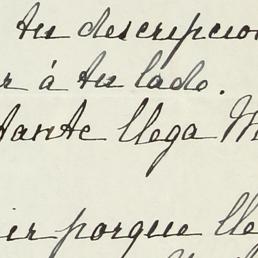 tu descripcion
r á tu lado.
tante llega M
ier porque lle